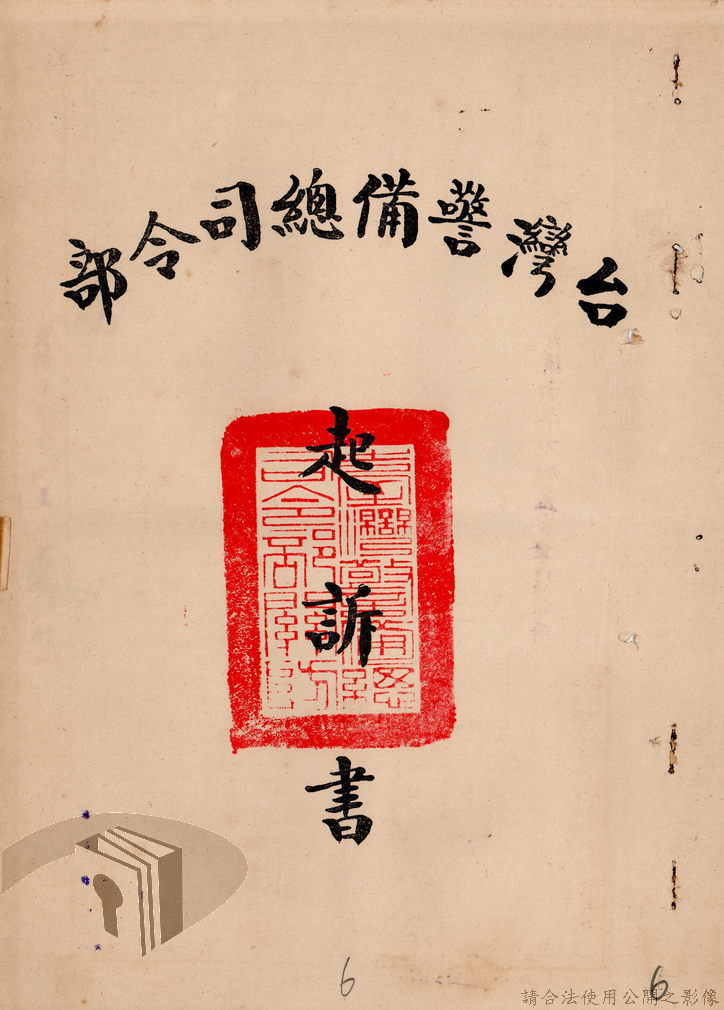 台灣警備總司令部
起訴書
6
6
請合法使用公開之影像